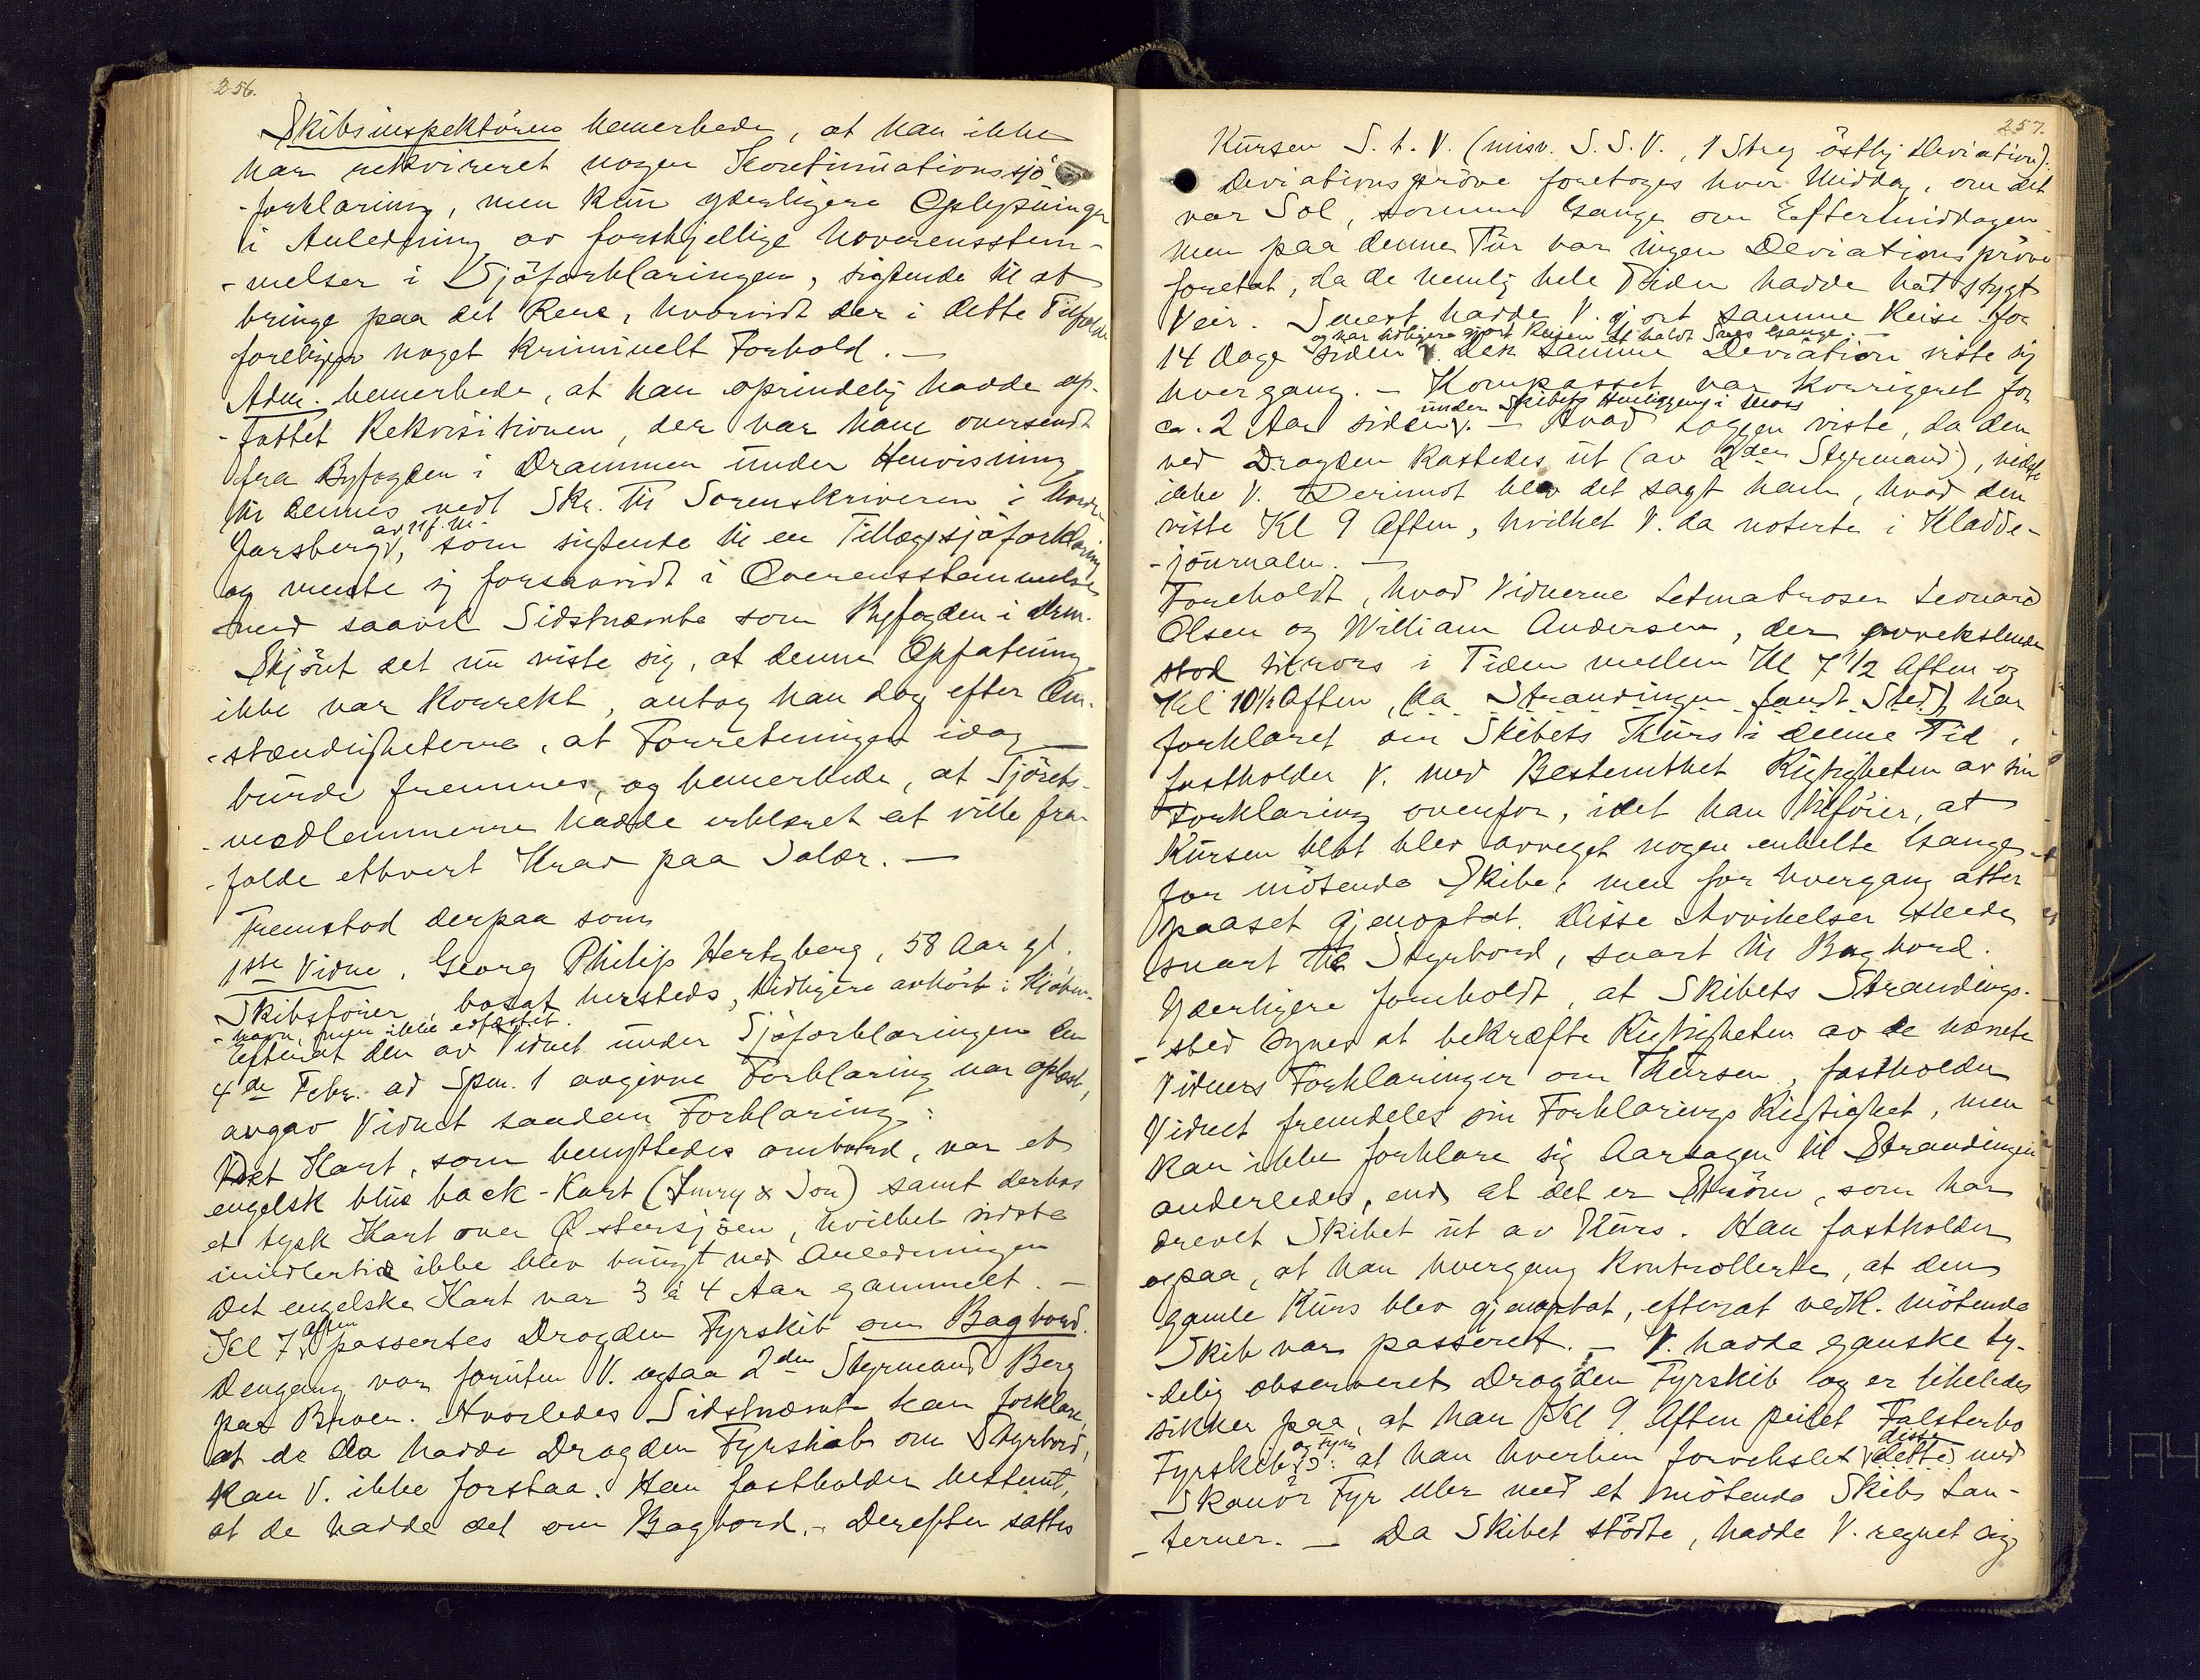 256.
Skibsinspektören bemerkede, at han ikke
har rekvireret nogen Kontinuationssjö-
-forklaring, men kun yderligere Oplysninger
i Anledning av forskjellige Uoverensstem-
-melser i Sjöforklaringen, sigtende til at
bringe paa det Rene, hvorvidt der i dette Tilfælde
foreligger noget kriminelt Forhold. —
Adm. bemerkede, at han oprindelig hadde op-
-fattet Rekvisitionen, der var ham oversendt
fra Byfogden i Drammen under Henvisning
til dennes vedl. Skr. til Sorenskriveren i Nordre
Jarsberg av 11 f. M., som sigtende til en Tillægssjöforklaring
og mente sig forsaavidt i Overensstemmelse
med saavel Sidstnævnte som Byfogden i Drm.
Skjönt det nu viste sig, at denne Opfatning
ikke var korrekt, antog han dog efter Om-
-stændigheterne, at Forretningen idag
burde fremmes, og bemerkede, at Sjörets-
-medlemmerne hadde erklæret at ville fra-
-falde ethvert Krav paa Salær. —
Fremstod derpaa som
1ste Vidne, Georg Philip Hertzberg, 58 Aar gl.
Skibsförer, bosat hersteds, tidligere avhört i Kjöben-
-havn, men ikke edfæstet.
Efterat den av Vidnet under Sjöforklaringen den
4de Febr. ad Spm. 1 avgivne Forklaring var oplæst,
avgav Vidnet saadan Forklaring:
Det Kart, som benyttedes ombord, var et
engelsk blue back-Kart (Imry & Son) samt derhos
et tysk Kart over Östersjöen, hvilket sidste
imidlertid ikke blev brugt ved Anledningen
Det engelske Kart var 3 à 4 Aar gammelt. —
Kl 7 aften passertes Drogden Fyrskib om Bagbord.
Dengang var foruten V. ogsaa 2den Styrmand Berg
paa Broen. Hvorledes Sidstnævnte kan forklare,
at de da hadde Drogden Fyrskib om Styrbord,
kan V. ikke forstaa. Han fastholder bestemt,
at de hadde det om Bagbord. – Derefter sattes
257.
Kursen S. t. V. (misv. S. S. V., 1 Streg östlig Deviation).
Deviationspröve foretoges hver Middag, om det
var Sol, somme Gange om Eftermiddagen
men paa denne Tur var ingen Deviationspröve
foretat, da de nemlig hele Tiden hadde hat stygt
Veir. Senest hadde V. gjort samme Reise for
14 Dage siden og har tidligere gjort Reisen et halvt Snes Gange. — Den samme Deviation viste sig
hvergang. – Kompasset var korrigeret for
ca. 2 Aar siden under Skibets Henliggen i Moss. – Hvad Loggen viste, da den
ved Drogden kastedes ut (av 2den Styrmand), vidste
ikke V. Derimot blev det sagt ham, hvad den
viste Kl 9 Aften, hvilket V. da noterte i Kladde-
-journalen. —
Foreholdt, hvad Vidnerne Letmatroser Leonard
Olsen og William Andersen, der avvekslende
stod tilrors i Tiden mellem Kl 7 1/2 Aften og
Kl 10 1/2 Aften, (da Strandingen fandt Sted) har
forklaret om Skibets Kurs i denne Tid,
fastholder V. med Bestemthet Rigtigheten av sin
Forklaring ovenfor, idet han tilföier, at
Kursen blot blev avveget nogen enkelte Gange
for mötende Skibe, men for hvergang atter
paaset gjenoptat. Disse Avvikelser skede
snart til Styrbord, snart til Bagbord.
Yderligere foreholdt, at Skibets Strandings-
-sted synes at bekræfte Rigtigheten av de nævnte
Vidners Forklaringer om Kursen, fastholder
Vidnet fremdeles sin Forklarings Rigtighet, men
kan ikke forklare sig Aarsagen til Strandingen
anderledes, end at det er Ström, som har
drevet Skibet ut av Kurs. Han fastholder
ogsaa, at han hvergang kontrollerte, at den
gamle Kurs blev gjenoptat, efterat vedk. mötende
Skib var passeret. – V. hadde ganske ty-
-delig observeret Drogden Fyrskib og er likeledes
sikker paa, at han Kl 9 Aften peilet Falsterbo
Fyrskib og Fyr, at han hverken forvekslet disse dette med
Skanör Fyr eller med et mötende Skibs Lan-
-terner. – Da Skibet stödte, hadde V. regnet sig